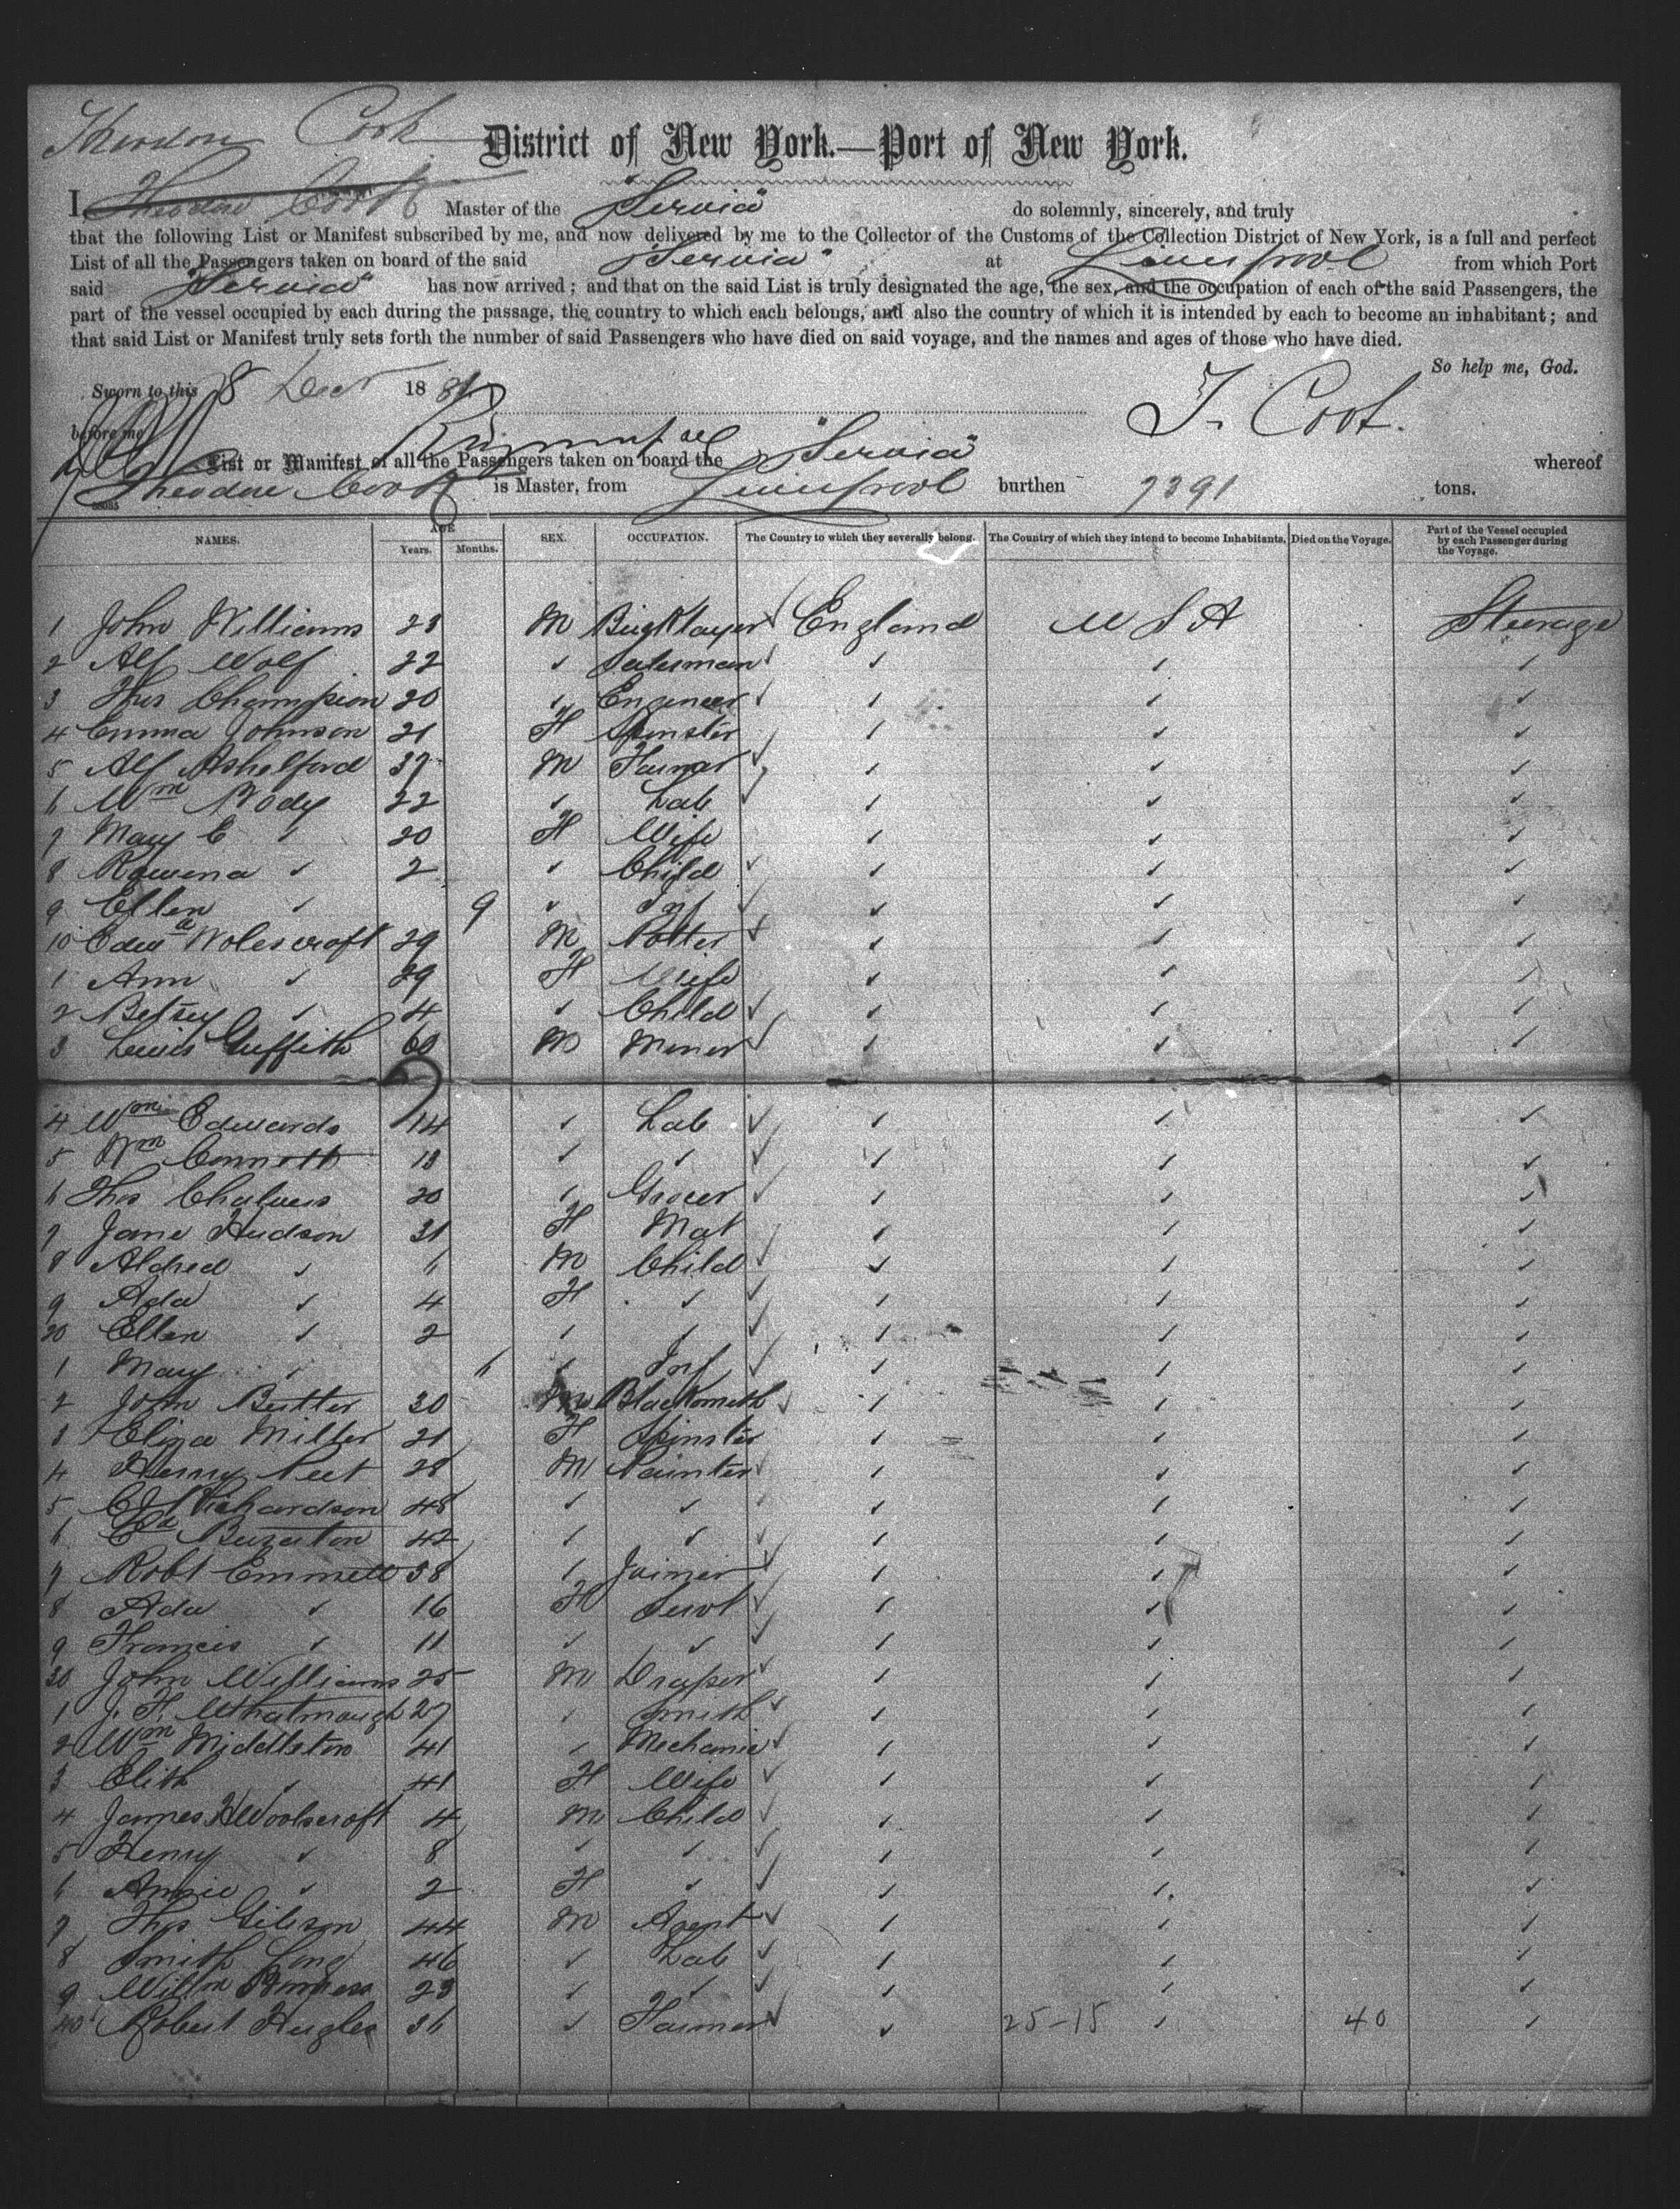 Theodore Cook
District of New York.—Port of New York.
I, Theodore Cook Master of the "Servia" do solemnly, sincerely, and truly
that the following List or Manifest subscribed by me, and now delivered by me to the Collector of the Customs of the Collection District of New York, is a full and perfect
List of all the Passengers taken on board of the said "Servia" at Liverpool from which Port
said "Servia" has now arrived; and that on the said List is truly designated the age, the sex, and the occupation of each of the said Passengers, the
part of the vessel occupied by each during the passage, the country to which each belongs, and also the country of which it is intended by each to become an inhabitant; and
that said List or Manifest truly sets forth the number of said Passengers who have died on said voyage, and the names and ages of those who have died.
So help me, God.
Sworn to this 8 Dec 188
before me
T. Cook.
List or Manifest of all the Passengers taken on board the "Servia" whereof
Theodore Cook is Master, from Liverpool burthen 7391 tons.
NAMES. AGE Years. Months. SEX. OCCUPATION. The Country to which they severally belong. The Country of which they intend to become Inhabitants. Died on the Voyage. Part of the Vessel occupied by each Passenger during the Voyage.
1 John Williams 23 M Bricklayer ✓ England U S A Steerage
2 Alf Wolf 22 ✓ Salesman ✓ ✓ ✓ ✓
3 Thos Champion 20 ✓ Engineer ✓ ✓ ✓ ✓
4 Emma Johnson 21 F Spinster ✓ ✓ ✓
5 Alf Ashelford 37 M Farmer ✓ ✓ ✓ ✓
6 Wm 22 ✓ Lab ✓ ✓ ✓ ✓
7 Mary E ✓ 20 F Wife ✓ ✓ ✓
8 Rowena ✓ 2 ✓ Child ✓ ✓ ✓ ✓
9 Ellen ✓ 9 ✓ Inf ✓ ✓ ✓ ✓
10 Edwd Wolescroft 29 M Potter ✓ ✓ ✓ ✓
1 Ann ✓ 29 F Wife ✓ ✓ ✓
2 Betsey ✓ 4 ✓ Child ✓ ✓ ✓ ✓
3 Lewis Griffith 60 M Miner ✓ ✓ ✓ ✓
4 Wm Edwards 14 ✓ Lab ✓ ✓ ✓ ✓
5 Wm 13 ✓ ✓ ✓ ✓ ✓ ✓
6 Thos Chalmers 20 ✓ Grocer ✓ ✓ ✓ ✓
7 Jane Hudson 31 F Mat ✓ ✓ ✓ ✓
8 Aldred ✓ 6 M Child ✓ ✓ ✓ ✓
9 Ada ✓ 4 F ✓ ✓ ✓ ✓ ✓
20 Ellen ✓ 2 ✓ ✓ ✓ ✓ ✓ ✓
1 Mary ✓ 6 ✓ Inf ✓ ✓ ✓ ✓
2 John Butter 30 M Blacksmith ✓ ✓ ✓ ✓
3 Eliza Miller 21 F Spinster ✓ ✓ ✓
4 Henry Peet 28 M Painter ✓ ✓ ✓ ✓
5 Richardson 48 ✓ ✓ ✓ ✓ ✓ ✓
6 42 ✓ ✓ ✓ ✓ ✓ ✓
7 Robt Emmett 38 ✓ Joiner ✓ ✓ ✓ ✓
8 Ada ✓ 16 F Servt ✓ ✓ ✓ ✓
9 Francis ✓ 11 ✓ ✓ ✓ ✓ ✓ ✓
30 John Williams 25 M Draper ✓ ✓ ✓ ✓
1 J. H. Whatmough 27 ✓ Smith ✓ ✓ ✓ ✓
2 Wm Middleton 41 ✓ Mechanic ✓ ✓ ✓ ✓
3 Elith ✓ 41 F Wife ✓ ✓ ✓ ✓
4 James H Woolscroft 4 M Child ✓ ✓ ✓ ✓
5 Henry ✓ 8 ✓ ✓ ✓ ✓ ✓ ✓
6 Annie ✓ 2 F ✓ ✓ ✓ ✓ ✓
7 Thos Gibson 44 M Agent ✓ ✓ ✓ ✓
8 Smith Long 46 ✓ Lab ✓ ✓ ✓ ✓
9 Willm 23 ✓ ✓ ✓ ✓ ✓ ✓
40 Robert Hughes 36 ✓ Farmer ✓ ✓ 25-15 ✓ 40 ✓